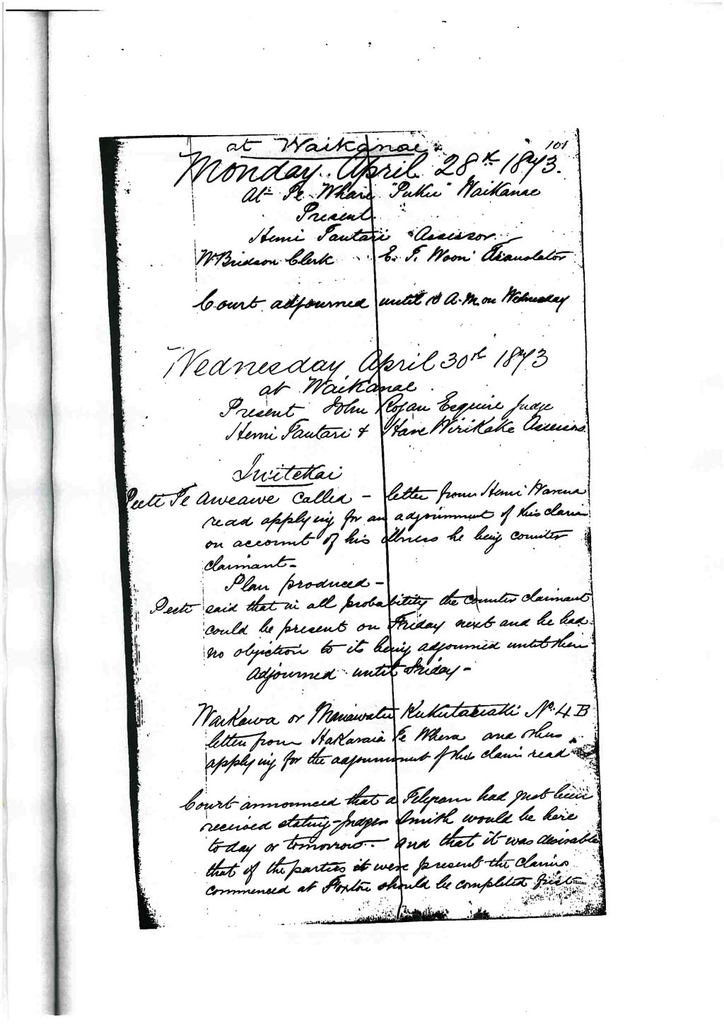 101
at Waikanae
Monday April 28th 1873.
At Te Whare "Puku" Waikanae
Present
Hemi Tautari Assessor
W Bridson Clerk E. T. Woon Translator
Court adjourned until 10 A.M. on Wednesday
Wednesday April 30th 1873
at Waikanae
Present John Rogan Esquire Judge
Hemi Tautari & Hare Wirikake Assessors
Tuitekai
Peeti Te Aweawe called – letter from Henri
read applying for an adjournment of this claim
on account of his illness he being counter
claimant –
Plan produced –
Peeti said that in all probability the counter claimant
could be present on Friday next and he had
no objection to its being adjourned until then
Adjourned until Friday –
Waikawa or Manawatu Kukutauaki No. 4 B
letter from Hakaraia Te Whena and others
applying for the adjournment of this claim read
Court announced that a Telegram had just been
received stating Judge Smith would be here
to day or tomorrow – and that it was desirable
that if the parties it were present the claims
commenced at Foxton should be completed first